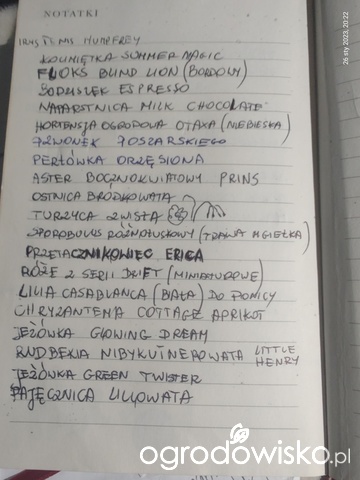 NOTATKI
26 sty 2023, 20:22
IRYS PUMS HUMPFREY
KOCIMIĘTKA SUMMER MAGIC
FLOKS BLIND LION (BORDOWY)
BODZISZEK ESPRESSO
NAPARSTNICA MILK CHOCOLATE
HORTENSJA OGRODOWA OTAXA (NIEBIESKA)
DZWONEK POSZARSKIEGO
PERŁÓWKA ORZĘSIONA
ASTER BOCZNOKWIATOWY PRINS
OSTNICA BRÓDKOWATA
TURZYCA ZWISŁA
SPOROBOLUS RÓŻNOŁUSKOWY (TRAWA MGIEŁKA)
PRZETACZNIKOWIEC ERICA
RÓŻE Z SERII DRIFT (MINIATUROWE)
LILIA CASABLANCA (BIAŁA) DO DONICY
CHRYZANTEMA COTTAGE APRIKOT
JEŻÓWKA GLOWING DREAM
RUDBEKIA NIBYKUTNEROWATA LITTLE HENRY
JEŻÓWKA GREEN TWISTER
PAJĘCZNICA LILIOWATA
ogrodowisko.pl